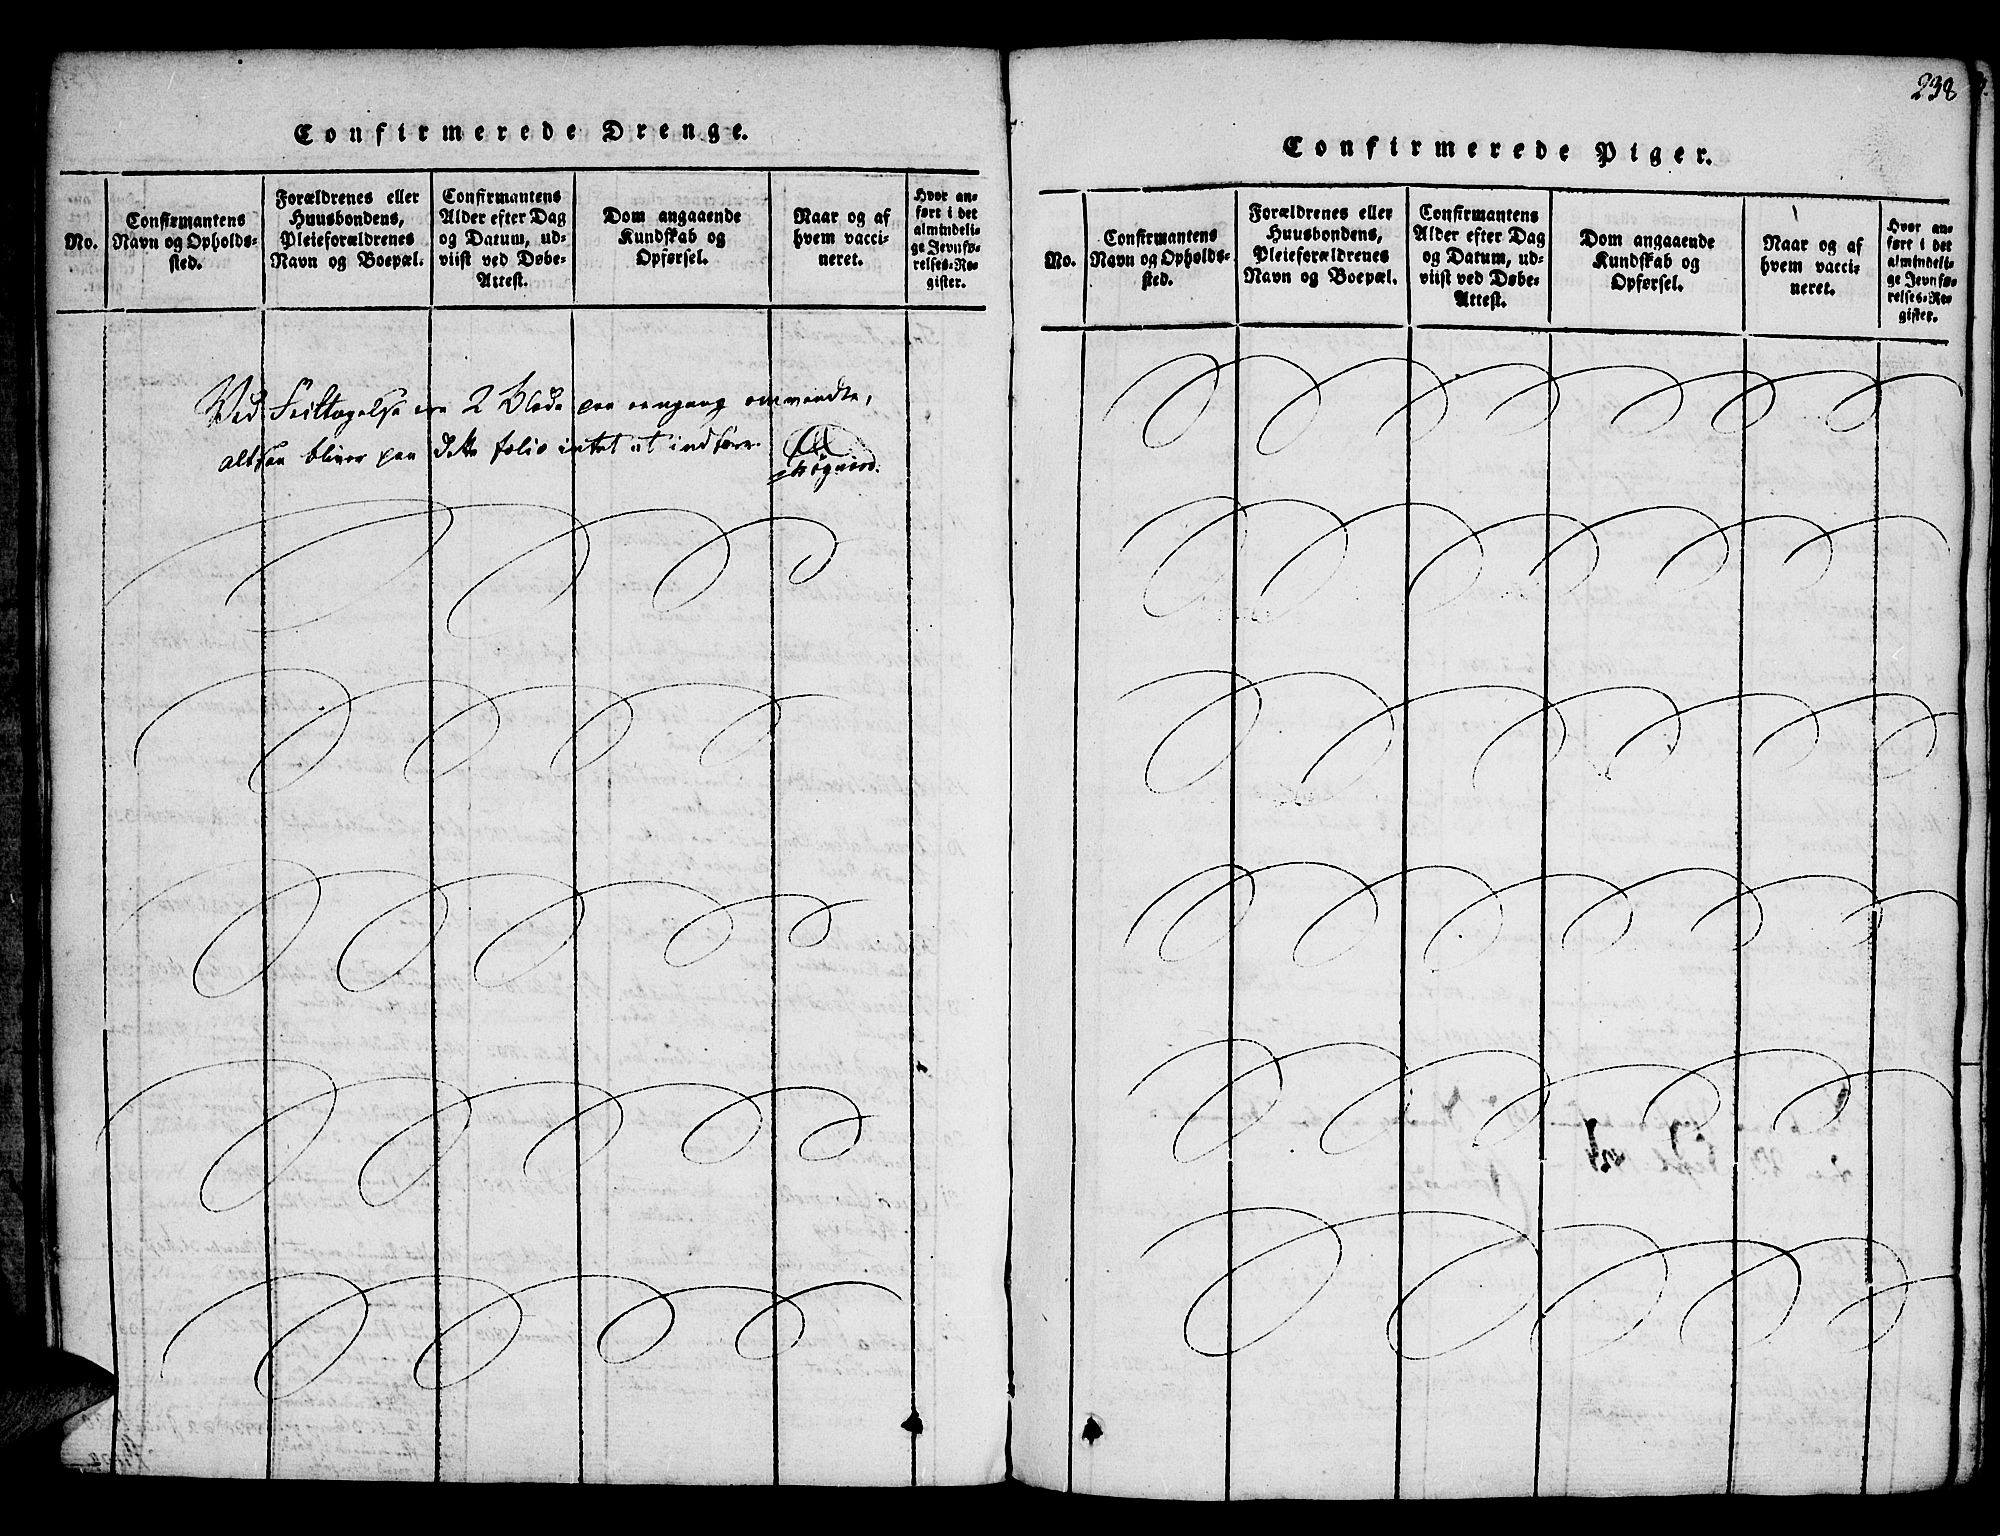 Confirmerede Drenge.
No.
Confirmantens
Navn og Opholds-
sted.
Forældrenes eller
Huusbondens,
Pleieforældrenes
Navn og Boepæl.
Confirmantens
Alder efter Dag
og Datum, ud-
viist ved Døbe-
Attest.
Dom angaaende
Kundskab og
Opførsel.
Naar og af
hvem vacci-
neret.
Hvor an-
ført i det
almindeli-
ge Jevnfø-
relses-Re-
gister.
Ved Feiltagelse ere 2 Blade paa eengang omvendte,
altsaa bliver paa dette folio intet at indføre.
238
Confirmerede Piger.
No.
Confirmantens
Navn og Opholds-
sted.
Forældrenes eller
Huusbondens,
Pleieforældrenes
Navn og Boepæl.
Confirmantens
Alder efter Dag
og Datum, ud-
viist ved Døbe-
Attest.
Dom angaaende
Kundskab og
Opførsel.
Naar og af
hvem vacci-
neret.
Hvor an-
ført i det
almindeli-
ge Jevnfø-
relses-Re-
gister.